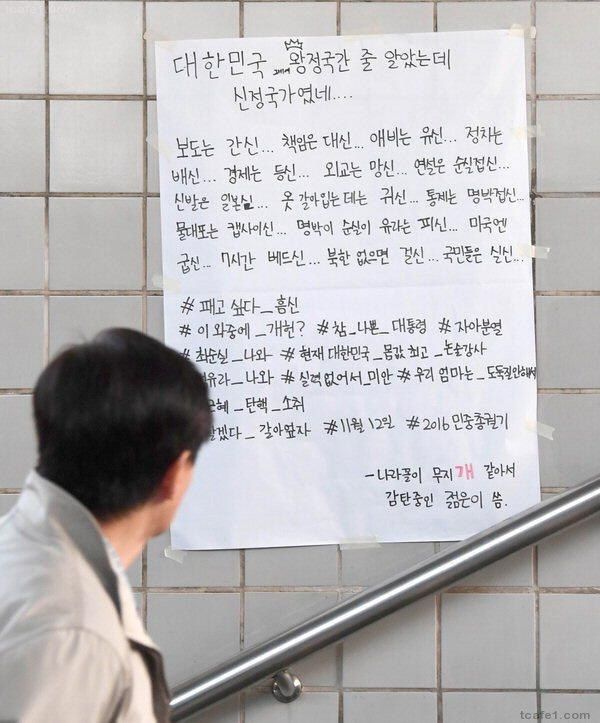 대한민국 왕정국간 줄 알았는데
신정국가였네....
보도는 간신... 책임은 대신... 애비는 유신... 정치는
배신... 경제는 등신... 외교는 망신... 연설은 순실접신...
신발은 일본실... 옷 갈아입는데는 귀신... 통제는 명박접신...
물대포는 캡사이신... 명박이 순실이 유라는 피신... 미국엔
굽신... 7시간 베드신... 북한 없으면 걸신... 국민들은 실신...
# 패고 싶다_흠신
# 이 와중에_개헌? # 참_나쁜_대통령 # 자아분열
# 최순실_나와 # 현재 대한민국_몸값 최고_논술강사
유라_나와 # 실력없어서_미안 # 우리 엄마는_도둑질안해서
근혜_탄핵_소취
갈겠다_갈아엎자 # 11월 12일 # 2016 민중총궐기
- 나라꼴이 무지개 같아서
감탄중인 젊은이 씀.
tcafe1.com